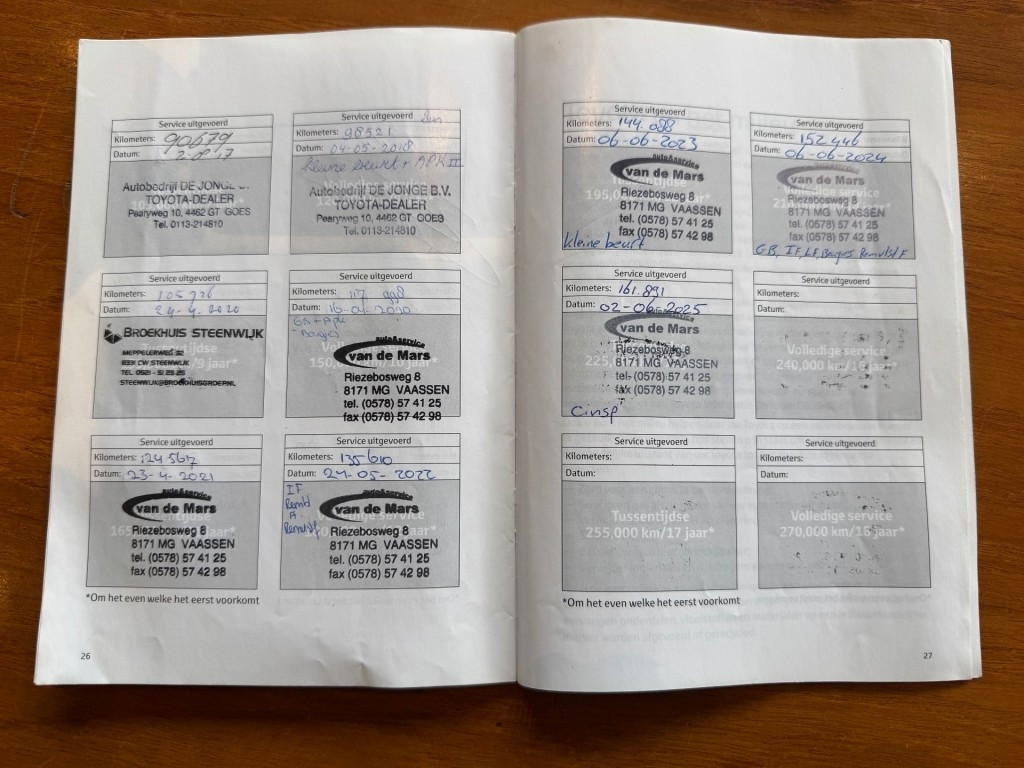 Service uitgevoerd
Kilometers: 90679
Datum:
Autobedrijf DE JONGE B.V.
TOYOTA-DEALER
Pearyweg 10, 4462 GT GOES
Tel. 0113-214810
Service uitgevoerd
Kilometers: 98521
Datum: 04-05-2018
kleine beurt + APK
Autobedrijf DE JONGE B.V.
TOYOTA-DEALER
Pearyweg 10, 4462 GT GOES
Tel. 0113-214810
Service uitgevoerd
Kilometers: 105726
Datum: 24-4-2020
BROEKHUIS STEENWIJK
Tussentijdse
MEPPELERWEG 52
STEENWIJK@BROEKHUISGROEP.NL
Service uitgevoerd
Kilometers: 117 998
Datum:
GB + Apk
- Banjes
auto&service
van de Mars
Riezebosweg 8
8171 MG VAASSEN
tel. (0578) 57 41 25
fax (0578) 57 42 98
Service uitgevoerd
Kilometers: 124 567
Datum: 23-4-2021
auto&service
van de Mars
Riezebosweg 8
8171 MG VAASSEN
tel. (0578) 57 41 25
fax (0578) 57 42 98
Service uitgevoerd
Kilometers: 135610
Datum: 24-05-2022
IF
auto&service
van de Mars
Volledige service
Riezebosweg 8
8171 MG VAASSEN
tel. (0578) 57 41 25
fax (0578) 57 42 98
*Om het even welke het eerst voorkomt
26
Service uitgevoerd
Kilometers: 144.088
Datum: 06-06-2023
auto&service
van de Mars
Tussentijdse
Riezebosweg 8
8171 MG VAASSEN
tel. (0578) 57 41 25
fax (0578) 57 42 98
kleine beurt
Service uitgevoerd
Kilometers: 152446
Datum: 06-06-2024
auto&service
van de Mars
Volledige service
Riezebosweg 8
8171 MG VAASSEN
tel. (0578) 57 41 25
fax (0578) 57 42 98
GB, IF, LF,
Service uitgevoerd
Kilometers: 161.891
Datum: 02-06-2025
auto&service
van de Mars
Riezebosweg 8
8171 MG VAASSEN
tel. (0578) 57 41 25
fax (0578) 57 42 98
Cinsp
Service uitgevoerd
Kilometers:
Datum:
Volledige service
240,000 km/16 jaar*
Service uitgevoerd
Kilometers:
Datum:
Tussentijdse
255,000 km/17 jaar*
Service uitgevoerd
Kilometers:
Datum:
Volledige service
270,000 km/18 jaar*
*Om het even welke het eerst voorkomt
27